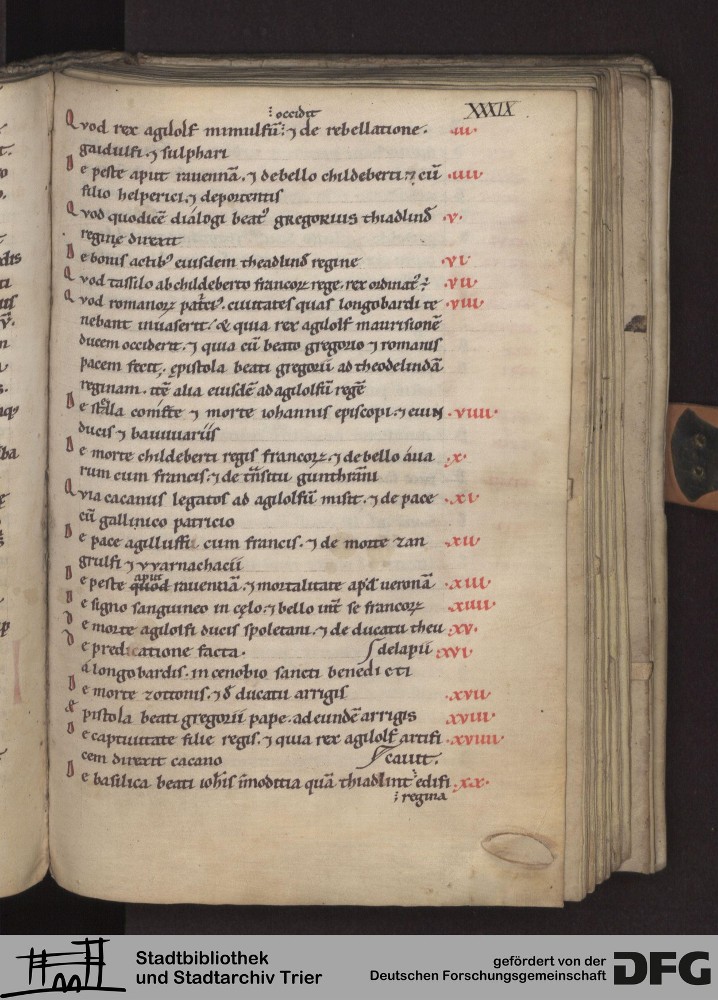 XXXIX
⁝ occidit
Qvod rex agilolf mimulfū ⁝ ⁊ de rebellatione. .iii.
gaidulfi. ⁊ sulphari
De peste aput rauennā. ⁊ de bello childeberti ⁊ cū .iiii.
filio helperici. ⁊ deporcentis
Qvod quodicē diálogi beatꝰ gregorius thiadlind .v.
regine direxit
De bonis actibꝰ eiusdem theadlind regine .vi.
Qvod tassilo ab childeberto francoꝝ rege. rex ordinatꝰ ÷ .vii.
Qvod romanoꝝ patciꝰ. ciuitates quas longobardi te .viii.
nebant inuaserit. & quia rex agilolf maurisionē
ducem occiderit. ⁊ quia cū beato gregorio ⁊ romanis
pacem fecit. epistola beati gregorii ad theodelindā
reginam. itē alia eiusdē ad agilolfū regē
De stella ⁊ morte iohannis episcopi. ⁊ euin .viiii.
ducis ⁊ bauuuariis
De morte childeberti regis francoꝝ. ⁊ de bello áua .x.
rum cum francis. ⁊ de tn̄situ gunthrāni
Qvia cacanus legatos ad agilolfū misit. ⁊ de pace .xi.
cū gallinico patricio
De pace agilluffi cum francis. ⁊ de morte zan .xii.
grulfi ⁊ vvarnachacii
aput
De peste quod rauennā. ⁊ mortalitate apd ueronā .xiii.
De signo sanguineo in cęlo. ⁊ bello int̄ se francoꝝ .xiiii.
De morte agilolfi ducis spoletani. ⁊ de ducatu theu .xv.
De predicatione facta. ʃ delapii .xvi.
a longobardis. in cenobio sancti benedicti
De morte zottonis. ⁊ đ ducatu arrigis .xvii.
Epistola beati gregorii pape. ad eundē arrigis .xviii.
De captiuitate filie regis. ⁊ quia rex agilolf artifi .xviiii.
cem direxit cacano ʃ cauit.
De basilica beati ioh̄is īmoditia quā thiadlint ⁝ edifi .xx.
⁝ regina
Stadtbibliothek
und Stadtarchiv Trier
gefördert von der
Deutschen Forschungsgemeinschaft
DFG